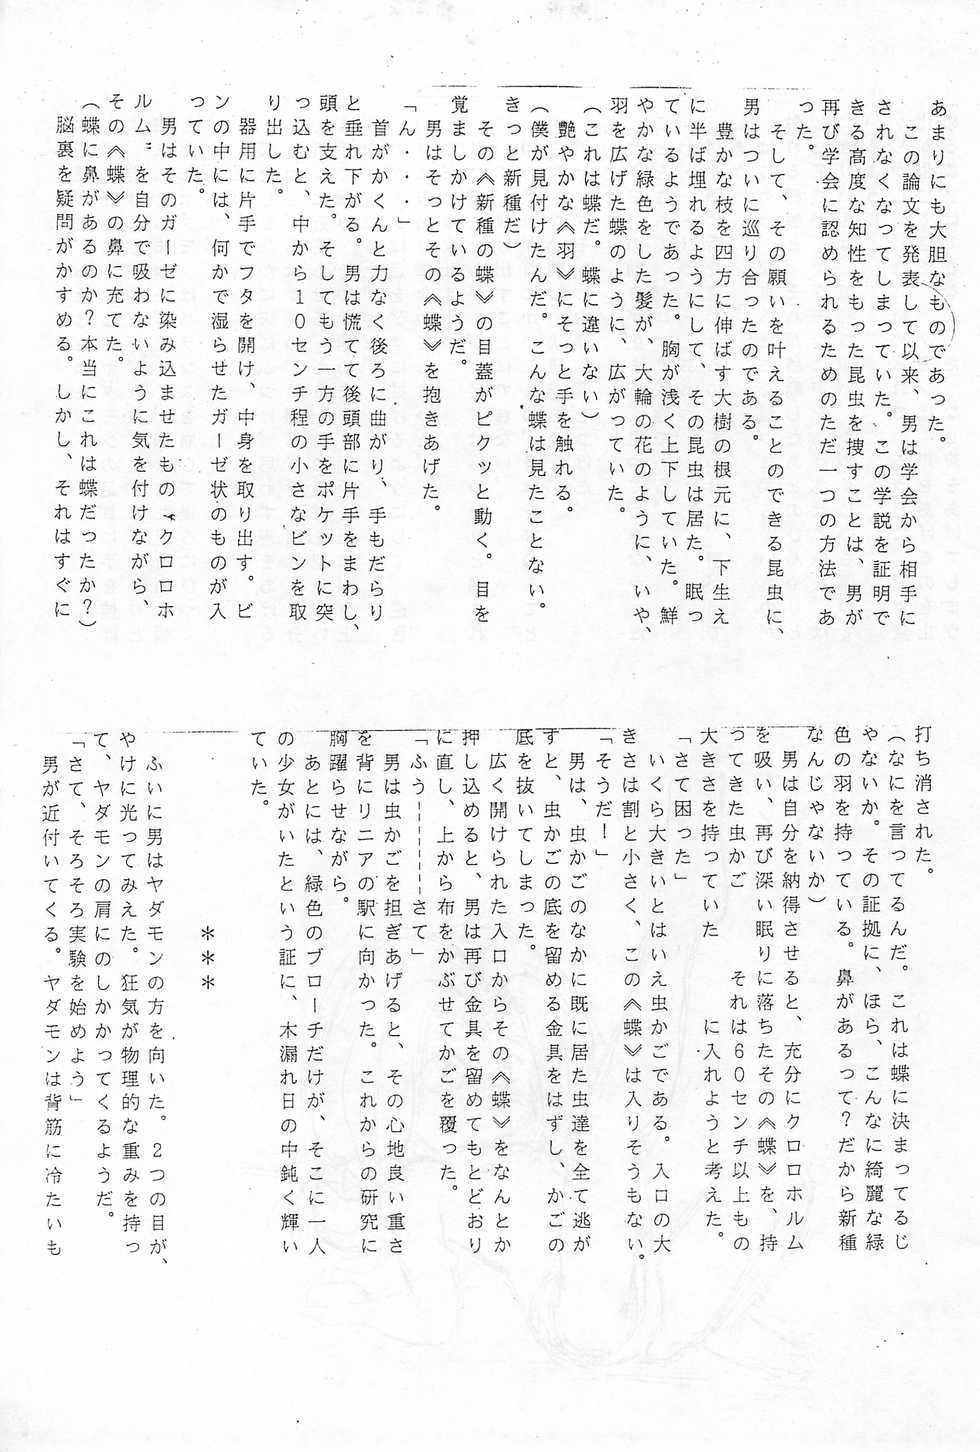 あまりにも大胆なものであった。
　この論文を発表して以来、男は学会から相手に
されなくなってしまっていた。この学説を証明で
きる高度な知性をもった昆虫を捜すことは、男が
再び学会に認められるためのただ一つの方法であ
った。
　そして、その願いを叶えることのできる昆虫に、
男はついに巡り合ったのである。
　豊かな枝を四方に伸ばす大樹の根元に、下生え
に半ば埋れるようにして、その昆虫は居た。眠っ
ているようであった。胸が浅く上下していた。鮮
やかな緑色をした髪が、大輪の花のように、いや、
羽を広げた蝶のように、広がっていた。
（これは蝶だ。　蝶に違いない）
　艶やかな《羽》にそっと手を触れる。
（僕が見付けたんだ。こんな蝶は見たことない。
きっと新種だ）
　その《新種の蝶》の目蓋がピクッと動く。目を
覚ましかけているようだ。
　男はそっとその《蝶》を抱きあげた。
「ん・・・・」
　首がかくんと力なく後ろに曲がり、手もだらり
と垂れ下がる。男は慌てて後頭部に片手をまわし、
頭を支えた。そしてもう一方の手をポケットに突
っ込むと、中から１０センチ程の小さなビンを取
り出した。
　器用に片手でフタを開け、中身を取り出す。ビ
ンの中には、何かで湿らせたガーゼ状のものが入
っていた。
　男はそのガーゼに染み込ませたもの〝クロロホ
ルム〟を自分で吸わないように気を付けながら、
その《蝶》の鼻に充てた。
（蝶に鼻があるのか？本当にこれは蝶だったか？）
　脳裏を疑問がかすめる。しかし、それはすぐに
打ち消された。
（なにを言ってるんだ。これは蝶に決まってるじ
ゃないか。その証拠に、ほら、こんなに綺麗な緑
色の羽を持っている。鼻があるって？だから新種
なんじゃないか）
　男は自分を納得させると、充分にクロロホルム
を吸い、再び深い眠りに落ちたその《蝶》を、持
ってきた虫かご　　　それは６０センチ以上もの
大きさを持っていた　　　に入れようと考えた。
「さて困った」
　いくら大きいとはいえ虫かごである。入口の大
きさは割と小さく、この《蝶》は入りそうもない。
「そうだ！」
　男は、虫かごのなかに既に居た虫達を全て逃が
すと、虫かごの底を留める金具をはずし、かごの
底を抜いてしまった。
　広く開けられた入口からその《蝶》をなんとか
押し込めると、男は再び金具を留めてもとどおり
に直し、上から布をかぶせてかごを覆った。
「ふう－－－－－－さて」
　男は虫かごを担ぎあげると、その心地良い重さ
を背にリニアの駅に向かった。これからの研究に
胸躍らせながら。
　あとには、緑色のブローチだけが、そこに一人
の少女がいたという証に、木漏れ日の中鈍く輝い
ていた。
＊＊＊
　ふいに男はヤダモンの方を向いた。２つの目が、
やけに光ってみえた。狂気が物理的な重みを持っ
て、ヤダモンの肩にのしかかってくるようだ。
「さて、そろそろ実験を始めよう」
　男が近付いてくる。ヤダモンは背筋に冷たいも